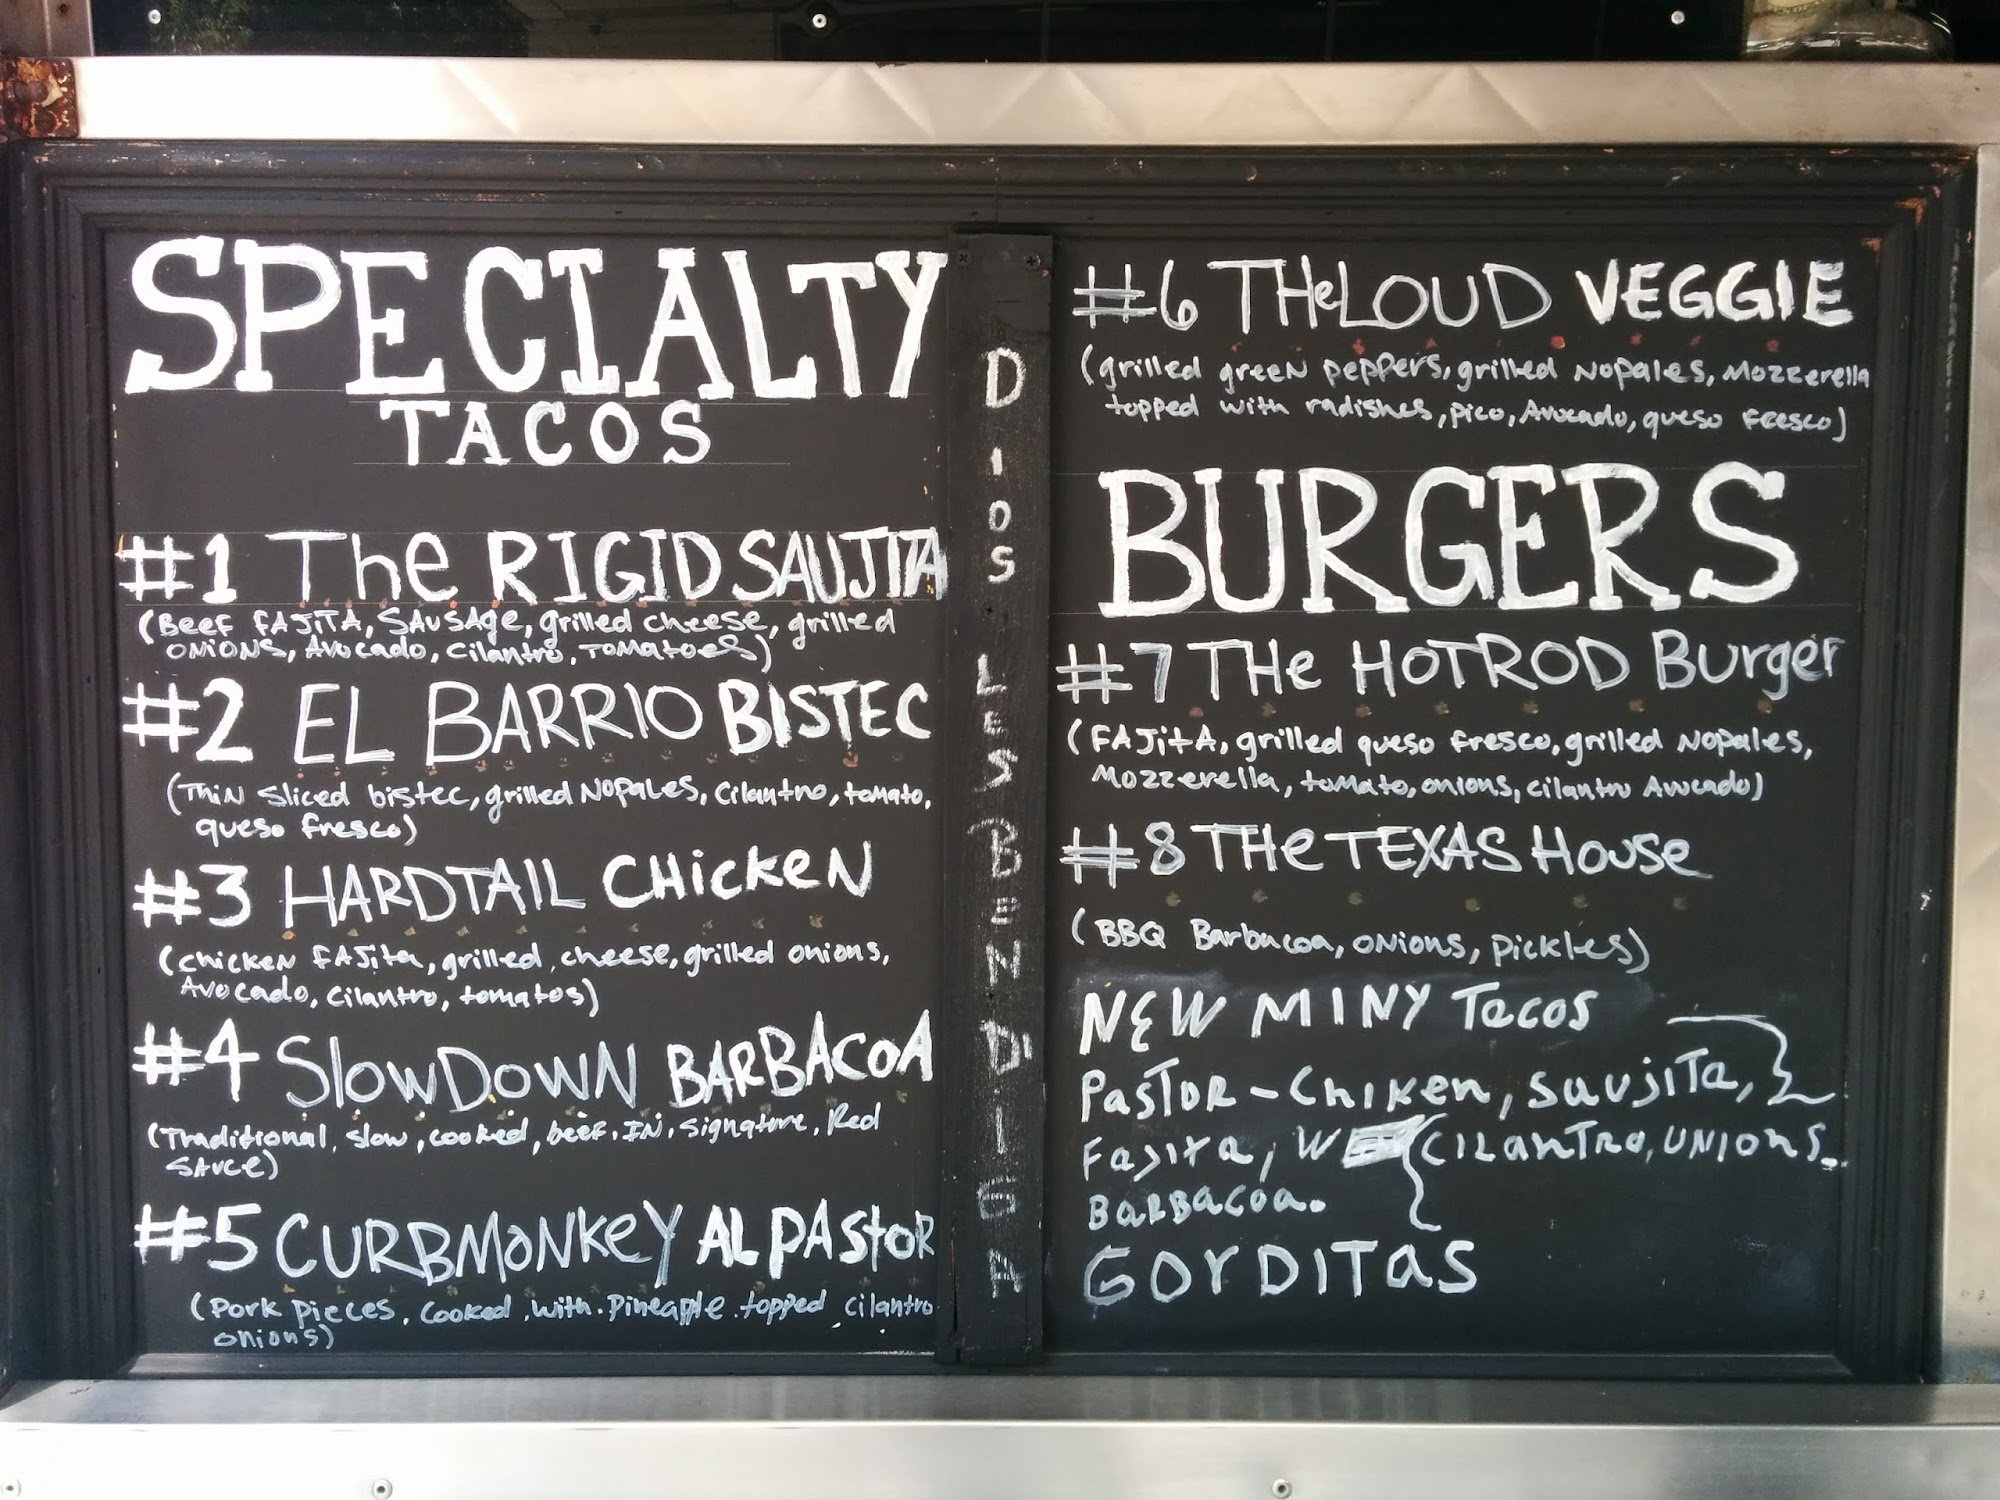 SPECIALTY
TACOS
#1 The RIGID SAUJITA
(Beef FAJiTA, SAUSAge, grilled cheese, grilled
ONIONS, Avocado, Cilantro, Tomatoes)
#2 EL BARRIO BISTEC
(Thin Sliced bistec, grilled NOPALES, Cilantro, tomato,
queso fresco)
#3 HARDTAIL CHicKeN
(chicKeN FAJita, grilled, cheese, grilled onions,
Avocado, Cilantro, tomatos)
#4 SlowDOWN BARBACOA
(Traditional, slow, cooked, beef, IN, signature, Red
SAuce)
#5 CURBMONKeY AL PAStOR
(Pork Pieces, Cooked, with. Pineapple. topped cilantro
onions)
DIOS LES BENDIGA
#6 THe LOUD VEGGIE
(grilled greeN PePPeRs, grilled NoPales, Mozzerella
topped with radishes, pico, Avocado, queso Fresco)
BURGERS
#7 THe HOTROD Burger
(FAJitA, grilled queso Fresco, grilled NoPales,
Mozzerella, tomato, onions, cilantro Avocado)
#8 THe TEXAS House
(BBQ Barbacoa, ONions, Pickles)
NEW MINY Tacos
PasTOR - ChiKen, sauJiTa,
FaJiTa, W CILanTRO, UNIOns.
BaRBacoa.
GOrDITaS